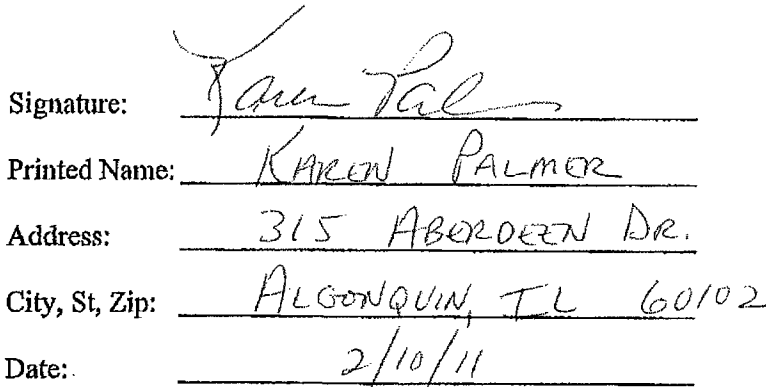 Signature: Karen Pal
Printed Name: KAREN PALMER
Address: 315 ABERDEEN DR.
City, St, Zip: ALGONQUIN, IL 60102
Date: 2/10/11